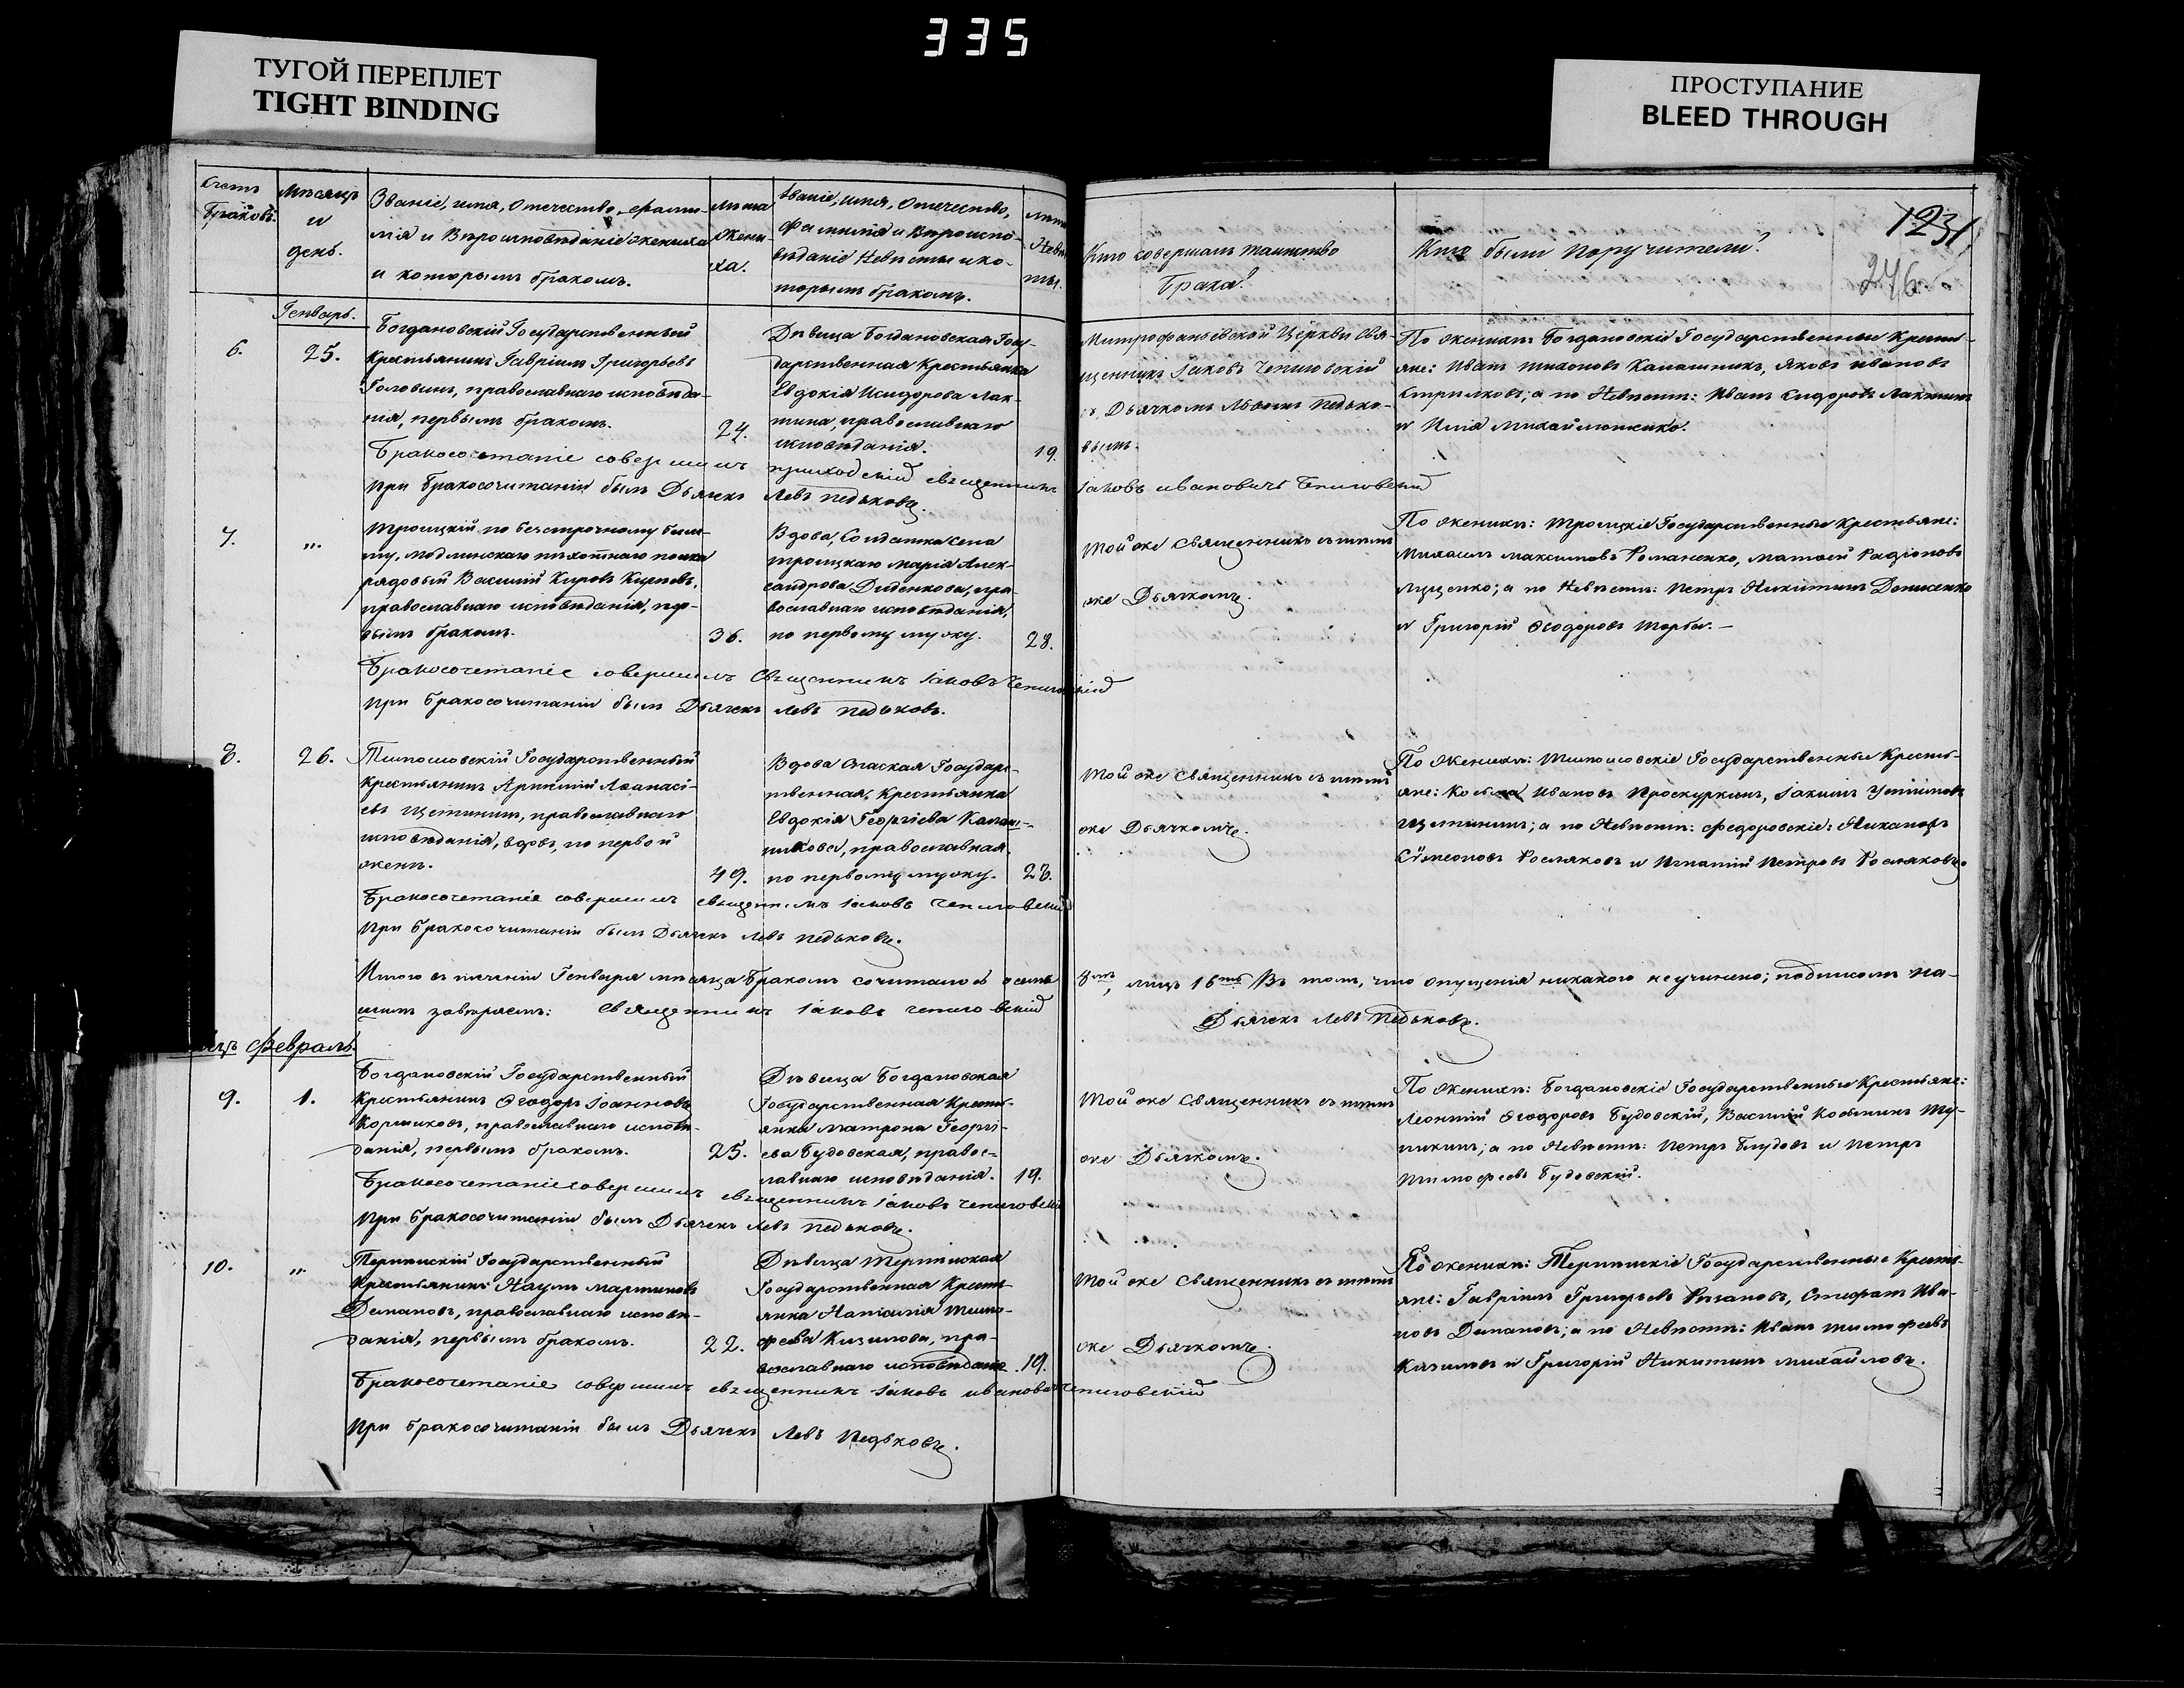 335
ТУГОЙ ПЕРЕПЛЕТ
TIGHT BINDING
ПРОСТУПАНИЕ
BLEED THROUGH
1231
246
Счетъ
браковъ.
Мѣсяцъ
и
день.
Званіе, имя, отечество, фами-
лія и вѣроисповѣданіе жениха
и которымъ бракомъ.
Лѣта
жени-
ха.
Званіе, имя, отечество,
фамилія и вѣроиспо-
вѣданіе невѣсты и ко-
торымъ бракомъ.
Лѣта
невѣ
ты.
Кто совершалъ таинство
брака?
Кто были поручители?
Генварь.
6.
25.
Богдановскій Государственный
крестьянинъ Гавріилъ Григорьевъ
Головинъ, православнаго исповѣда-
нія, первымъ бракомъ.
24.
Дѣвица Богдановская Госу-
дарственная крестьянка
Евдокія Исидорова Лак-
тина, православнаго
исповѣданія.
19.
Митрофаньевской Церкви Свя-
щенникъ Іаковъ Чепиговскій
съ Дьячкомъ Львомъ Педько-
вымъ.
По женихѣ: Богдановскіе Государственные крестья-
не: Иванъ Тихоновъ Калашникъ, Яковъ Ивановъ
Стрилковъ; а по невѣстѣ: Иванъ Сидоровъ Лактинъ
и Илія Михайлюженко.
Бракосочетаніе совершилъ приходскій священникъ Іаковъ Ивановичъ Чепиговскій
При бракосочитаніи былъ Дьячекъ Левъ Педьковъ.
7.
"
Троицкій по безсрочному биле-
ту, Модлинскаго пѣхотнаго полка
рядовый Василій Кировъ Кирѣевъ,
православнаго исповѣданія, пер-
вымъ бракомъ.
36.
Вдова, Солдатка села
Троицкаго Марія Алек-
сандрова Диденкова, пра-
вославнаго исповѣданія,
по первому мужу.
28.
Той же Священникъ съ тѣмъ
же Дьячкомъ.
По женихѣ: Троицкіе Государственные крестьяне:
Михаилъ Максимовъ Романенко, Матѳей Радіоновъ
Ищенко; а по невѣстѣ: Петръ Никитинъ Денисенко
и Григорій Ѳеодоровъ Торба. —
Бракосочетаніе совершилъ Священникъ Іаковъ Чепиговскій
При бракосочитаніи былъ Дьячекъ Левъ Педьковъ.
8.
26.
Тимошовскій Государственный
крестьянинъ Артемій Аѳанасі-
евъ Щетининъ, православнаго
исповѣданія, вдовъ, по первой
женѣ.
49.
Вдова Спаская Государс-
твенная крестьянка
Евдокія Георгіева Калаш-
никова, православная
по первому мужу.
28.
Той же Священникъ съ тѣмъ
же Дьячкомъ.
По женихѣ: Тимошовскіе Государственные кресть-
яне: Козьма Ивановъ Проскуркинъ, Іакимъ Устимовъ
Щетининъ; а по невѣстѣ: Федоровскіе: Никаноръ
Симеоновъ Росляковъ и Игнатій Петровъ Росляковъ.
Бракосочетаніе совершилъ священникъ Іаковъ Чепиговскій
При бракосочитаніи былъ Дьячекъ Левъ Педьковъ.
Итого въ теченіи Генваря мѣсяца бракомъ сочиталось осемь 8мъ, лицъ 16ть Въ томъ, что опущенія никакого не учинено; подписомъ на-
шимъ завѣряемъ: Священникъ Іаковъ Чепиговскій Дьячекъ Левъ Педьковъ.
Февраль.
9.
1.
Богдановскій Государственный
крестьянинъ Ѳеодоръ Іоанновъ
Коршиковъ, православнаго исповѣ-
данія, первымъ бракомъ.
25.
Дѣвица Богдановская
Государственная кресть-
янка Матрона Георгі-
ева Будовская, правос-
лавнаго исповѣданія.
19.
Той же Священникъ съ тѣмъ
же Дьячкомъ.
По женихѣ: Богдановскіе Государственные крестьяне:
Леонтій Ѳеодоровъ Будовскій, Василій Козьминъ Ту-
пикинъ; а по невѣстѣ: Петръ Блудовъ и Петръ
Тимофеевъ Будовскій.
Бракосочетаніе совершилъ священникъ Іаковъ Чепиговскій
При бракосочитаніи былъ Дьячекъ Левъ Педьковъ.
10.
"
Терпѣнскій Государственный
крестьянинъ Наумъ Мартиновъ
Деманов, православнаго исповѣ-
данія, первымъ бракомъ.
22.
Дѣвица Терпѣнская
Государственная кресть-
янка Наталія Тимо-
феева Кизилова, пра-
вославнаго исповѣдань
19.
Той же Священникъ съ тѣмъ
же Дьячкомъ.
По женихѣ: Терпѣнскіе Государственные кресть-
яне: Гавріилъ Григорьевъ Рязановъ, Стефанъ Ива-
новъ Димановъ; а по невѣстѣ: Иванъ Тимофеевъ
Кизиловъ и Григорій Никитинъ Михайловъ.
Бракосочетаніе совершилъ священникъ Іаковъ Ивановичъ Чепиговскій
При бракосочитаніи былъ Дьячекъ Левъ Педьковъ.